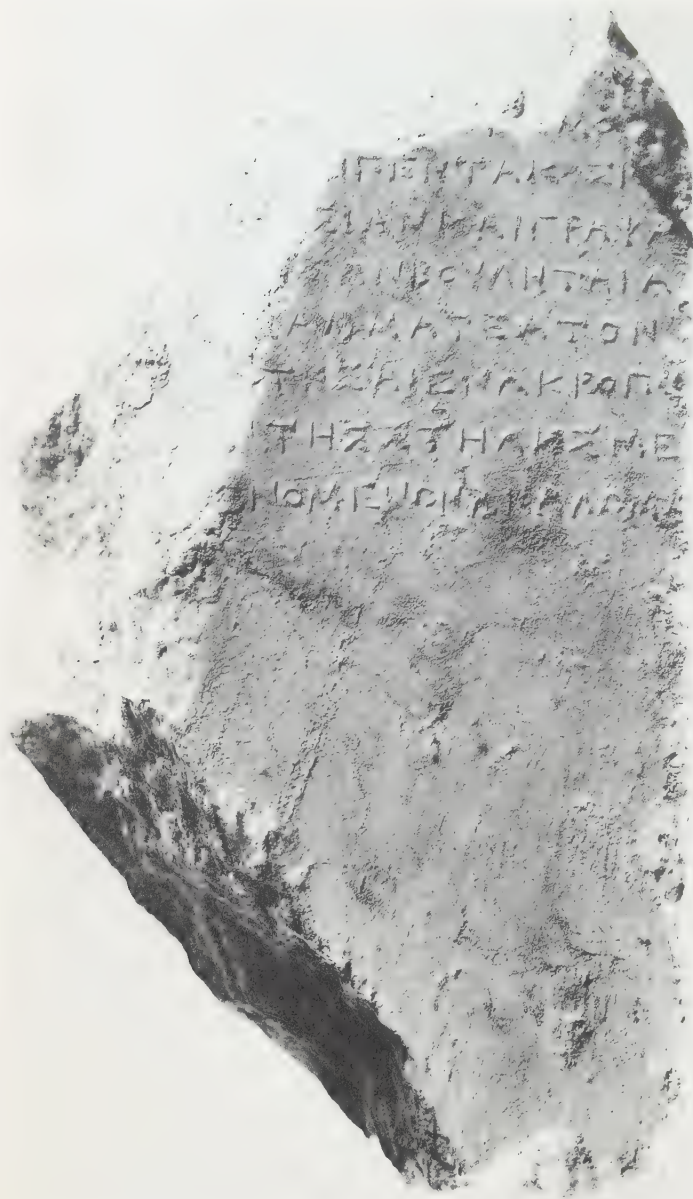 ΙΠΕΝΤΑΚΟΣΙ
ΣΙΑΝΚΑΙΓΡΑΨΑ
ΑΝΒΟΥΛΗΤΑΙΑ
ΑΜΜΑΤΕΑΤΟΝ
ΤΗΣΑΙΕΝΑΚΡΟΠΟ
ΤΗΣΣΤΗΛΗΣΜΕ
ΝΟΜΕΝΟΝΑΝΑΛΩΜΑ